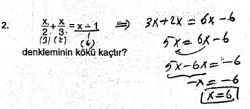 2. x/2 + x/3 = x-1 ⇒ 3x+2x = 6x-6
(3) (2) 1
(6)
5x = 6x-6
denkleminin kökü kaçtır?
5x-6x=-6
-x = -6
x=6